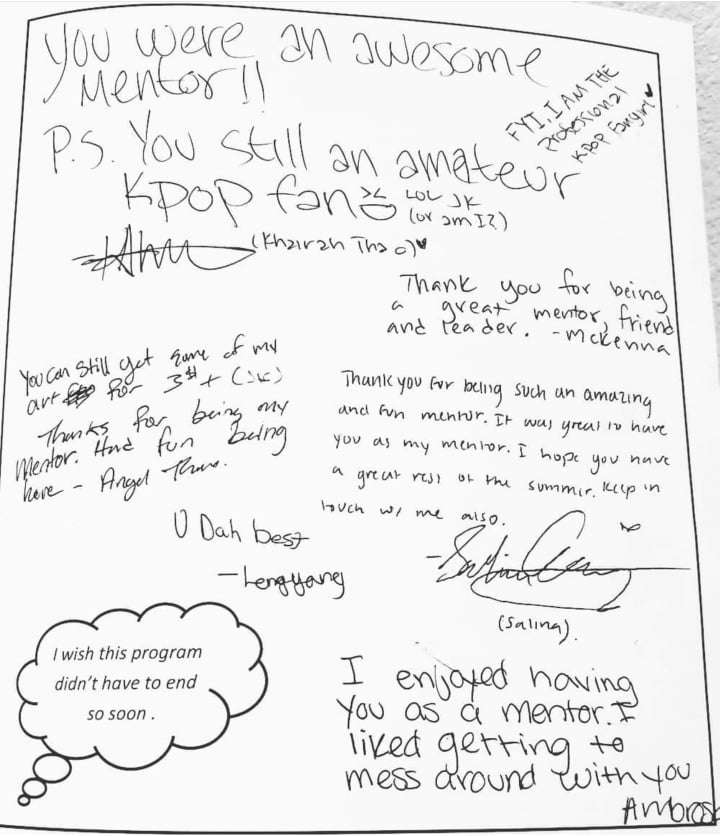 You were an awesome
Mentor!!
FYI, I AM THE
professional
kpop fangirl
P.S. You still an amateur
Kpop fan
LOL JK
(or am I?)
(Khairah Thao)
Thank you for being
a great mentor, friend
and leader. - McKenna
You can still get some of my
art for 3$ + (JK)
Thanks for being my
Mentor. Had fun being
here - Angel
Thank you for being such an amazing
and fun mentor. It was great to have
you as my mentor. I hope you have
a great rest of the summer. Keep in
touch w/ me also.
(Salina).
U Dah best
- Lengyang
I wish this program
didn't have to end
so soon .
I enjoyed having
you as a mentor. I
liked getting to
mess around with you
Ambros